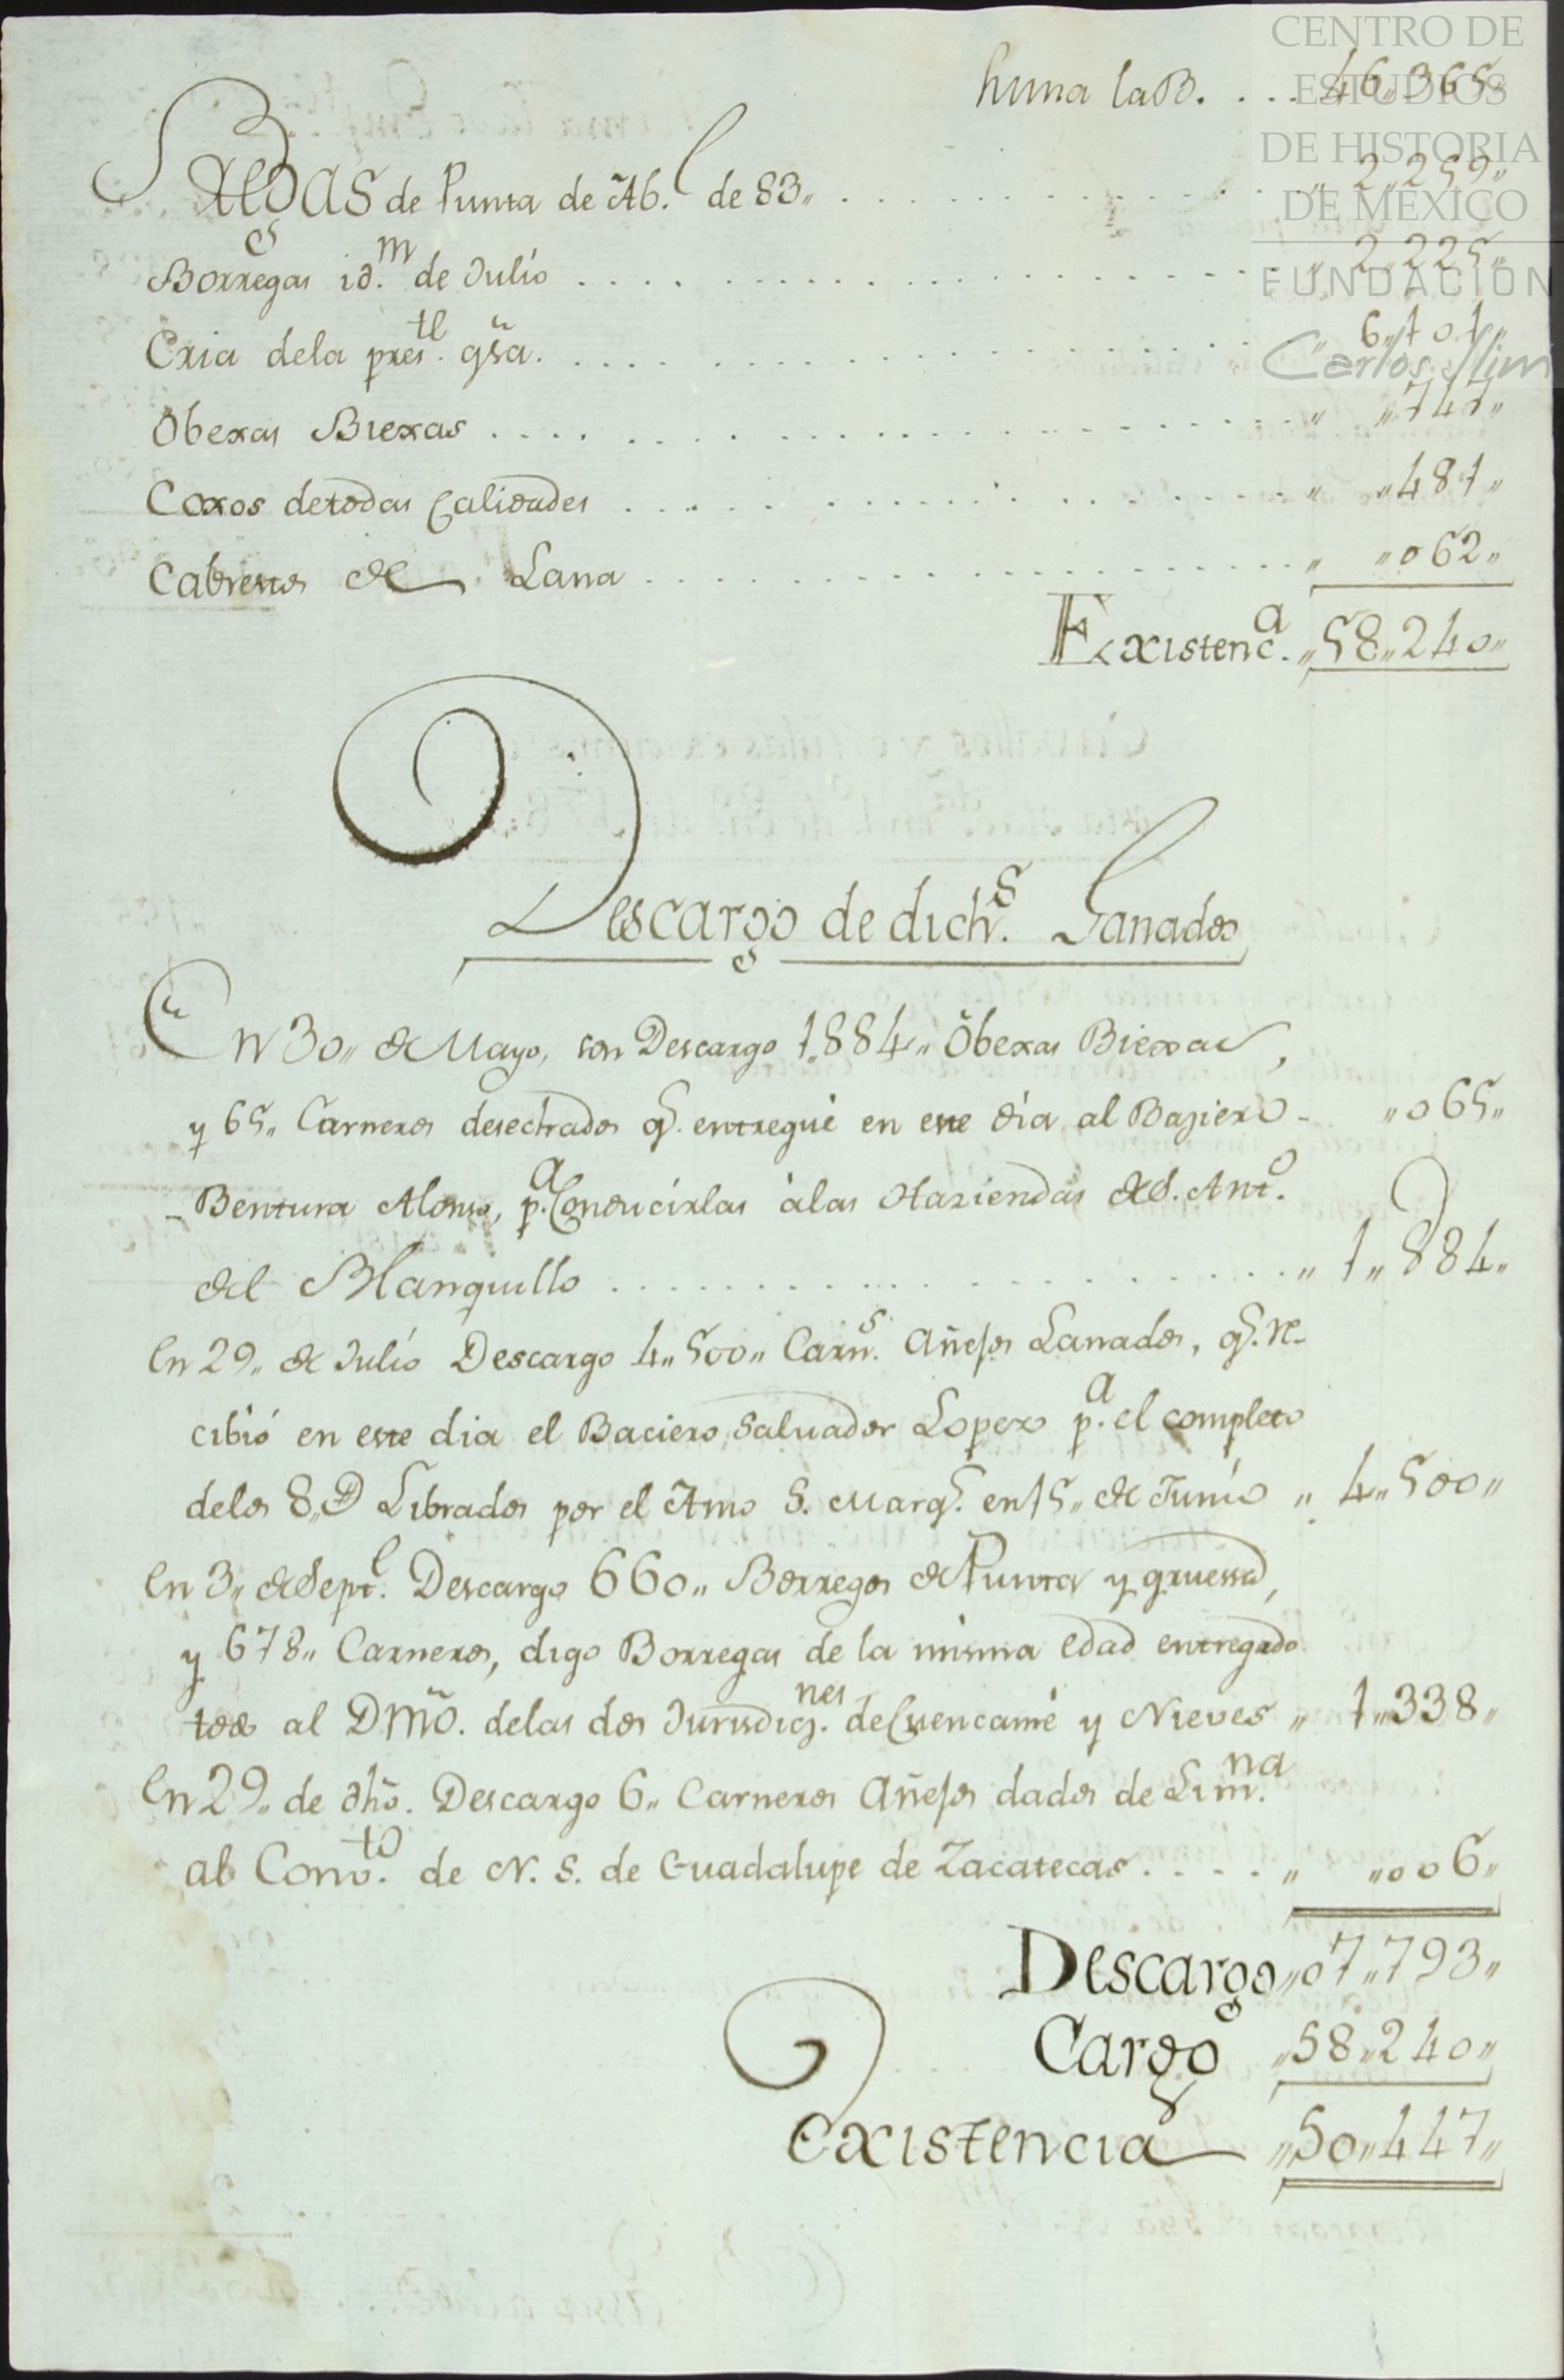 Suma la B. . . . 46,,365,,
CENTRO DE
ESTUDIOS
DE HISTORIA
DE MÉXICO
FUNDACIÓN
Carlos Slim
de Punta de Ab.l de 83,, . . . ,, 2,,259,,
Borregas id.m de Julio . . . ,, 2,,225,,
Cria dela pres.te gña. . . . ,, 6,,101,,
Obexas Biexas . . . ,, ,,747,,
Coxos detodas Calidades . . . ,, ,,481,,
Cabrestos de Lana . . . ,, ,,062,,
Existenc.a ,,58,,240,,
Descargo de dich.s Ganados
En 30,, de Mayo, son Descargo 1,,884,, Obexas Biexas,
y 65,, Carneros desechados q.e entregué en este dia al Baziero - ,,065,,
Bentura Alonso, p.a Conducirlas àlas Haziendas de S. Ant.o
del Blanquillo . . . ,, 1,,884,,
En 29,, de Julio Descargo 4,,500,, Carn.s Añejos Lanados, q.e re-
cibió en este dia el Baciero Salvador Lopez p.a el completo
delos 8,,D Librados por el Amo S. Marq.s en 15,, de Junio ,, 4,,500,,
En 3,, de Sept.e Descargo 660,, Borregos de Punta y gruessa,
y 678,, Carneros, digo Borregas de la misma edad entregado
todo al Dmõ. delas dos Jurisdicj.nes de Cuencamé y Nieves ,, 1,,338,,
En 29,, de dhõ. Descargo 6,, Carneros Añejos dados de Lim.na
al Conv.to de N. S. de Guadalupe de Zacatecas . . . ,, ,,006,,
Descargo ,,07,,793,,
Cargo ,,58,,240,,
Existencia ,,50,,447,,